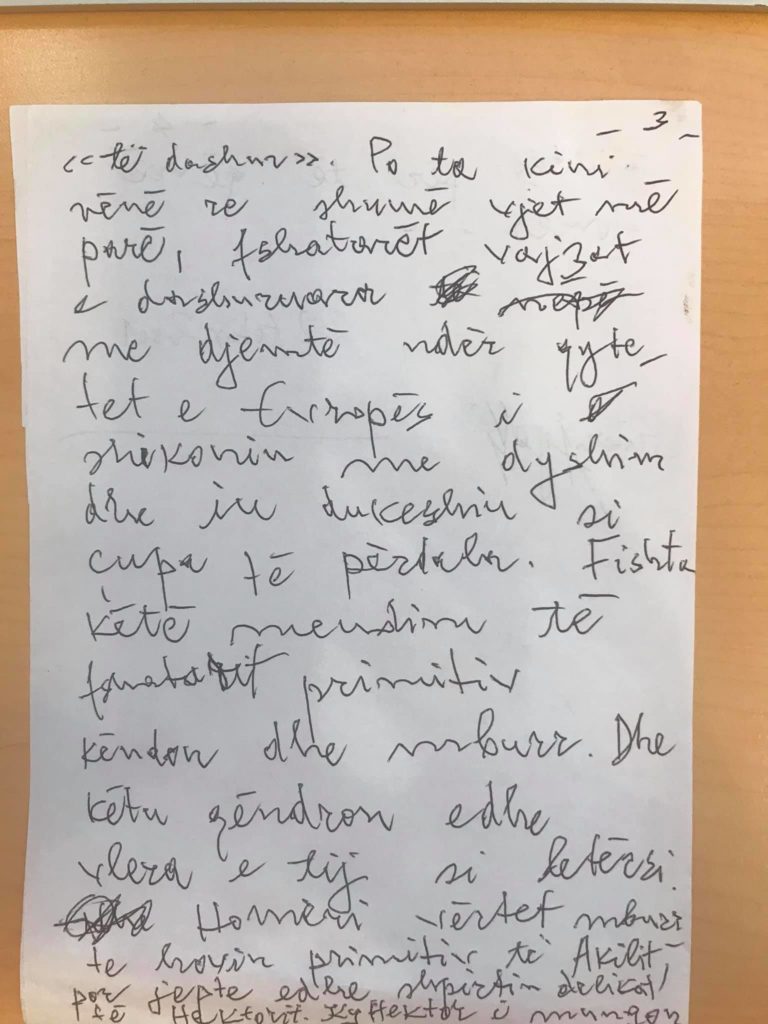 - 3 -
<<të dashur>>. Po ta kini
vënë re shumë vjet më
parë, fshatarët vajzat
e dashuruara
me djemtë ndër qyte-
tet e Evropës i
shikonin me dyshim
dhe iu dukeshin si
çupa të përdala. Fishta
këtë mendim të
fshatarit primitiv
këndon dhe mburr. Dhe
këtu qëndron edhe
vlera e tij si letërsi.
Homeri vërtet mburr
te hovin primitiv të Akilit,
por jepte edhe shpirtin delikat
të Hektorit. Ky Hektor i mungon